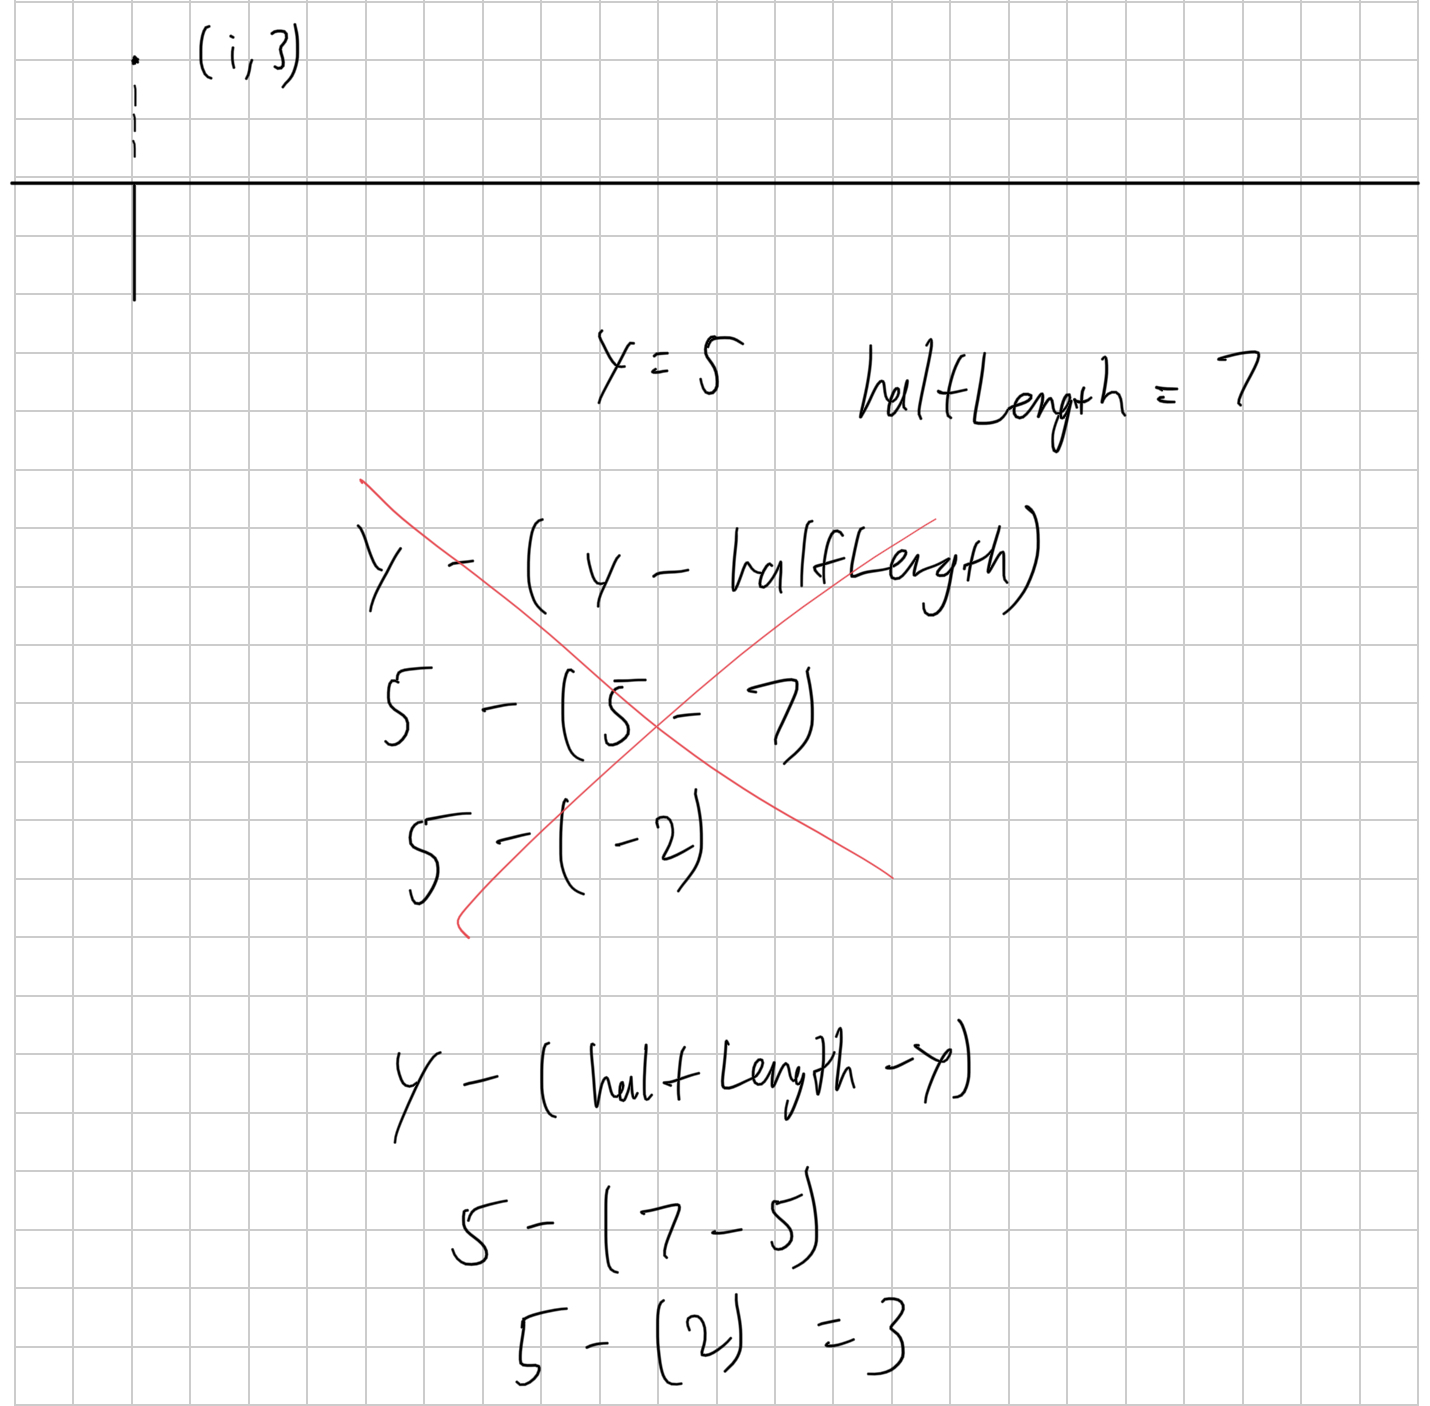 (i, 3)
y = 5 halfLength = 7
y - ( y - halfLength)
5 - (5 - 7)
5 - ( -2)
y - (halfLength - y)
5 - (7 - 5)
5 - (2) = 3